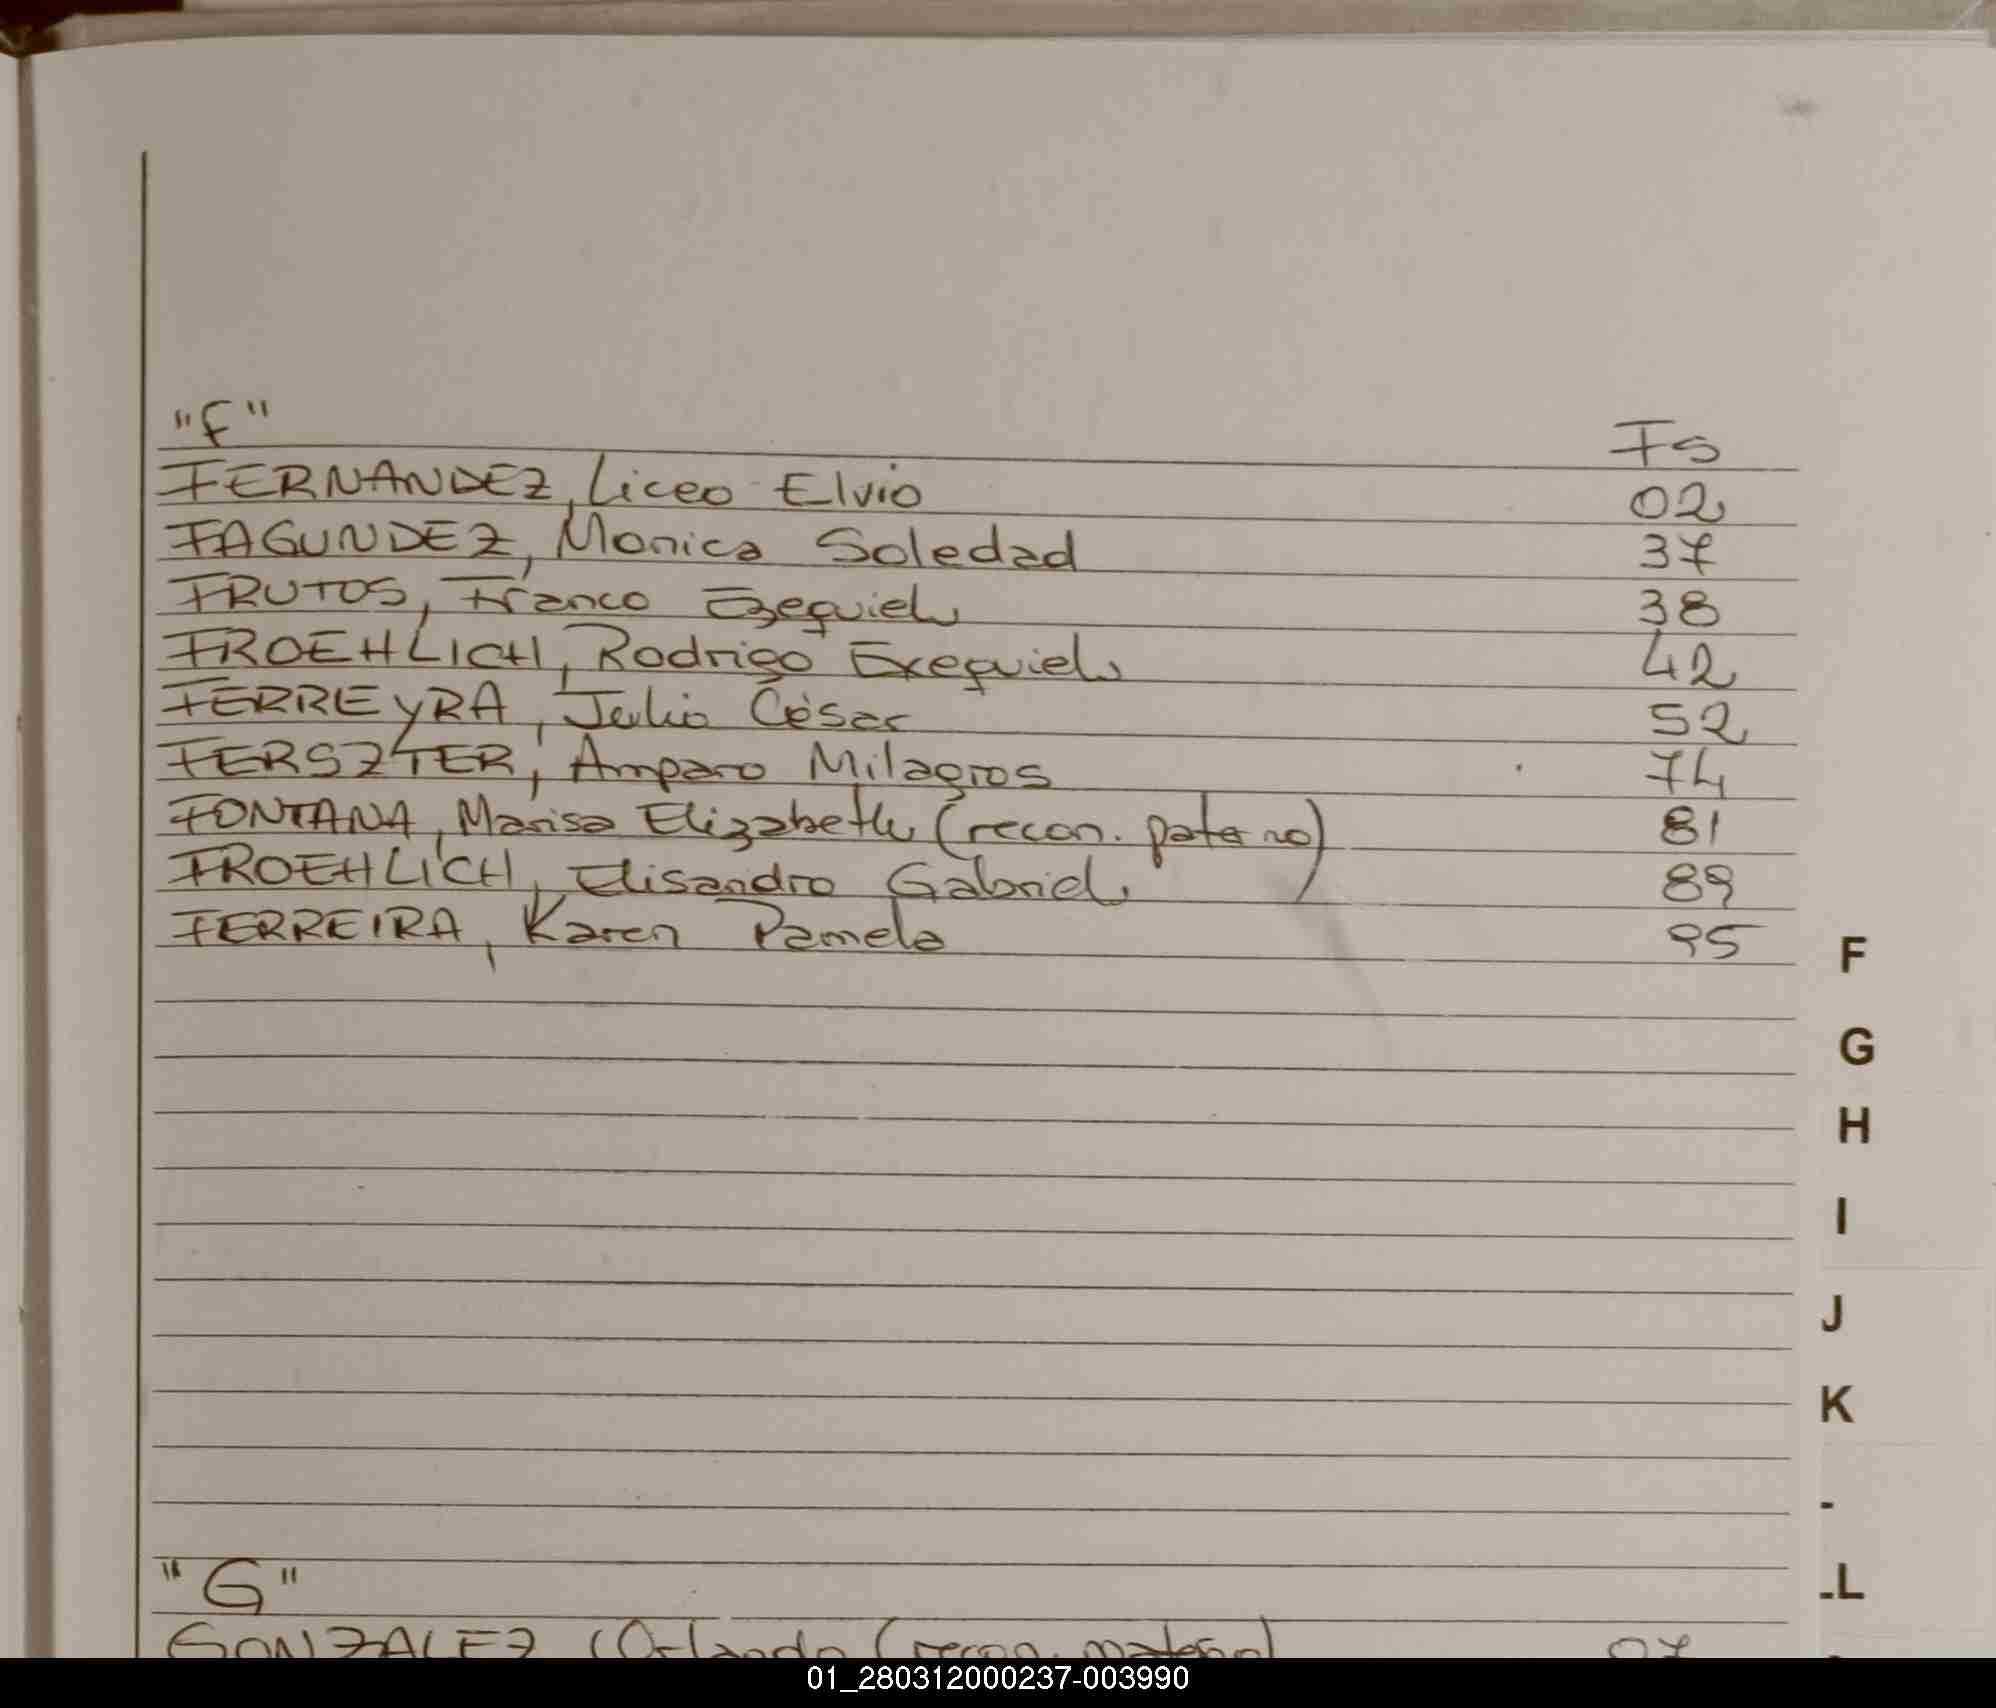 "F" Fs
FERNANDEZ, Liceo Elvio 02
FAGUNDEZ, Monica Soledad 37
FRUTOS, Franco Ezequiel 38
FROEHLICH, Rodrigo Exequiel 42
FERREYRA, Julio César 52
FERSZTER, Amparo Milagros 74
FONTANA, Marisa Elizabeth (recon. paterno) 81
FROEHLICH, Elisandro Gabriel 89
FERREIRA, Karen Pamela 95
F
G
H
I
J
K
-
-L
"G"
GONZALEZ, Orlando (recon. materno) 07
01_280312000237-003990